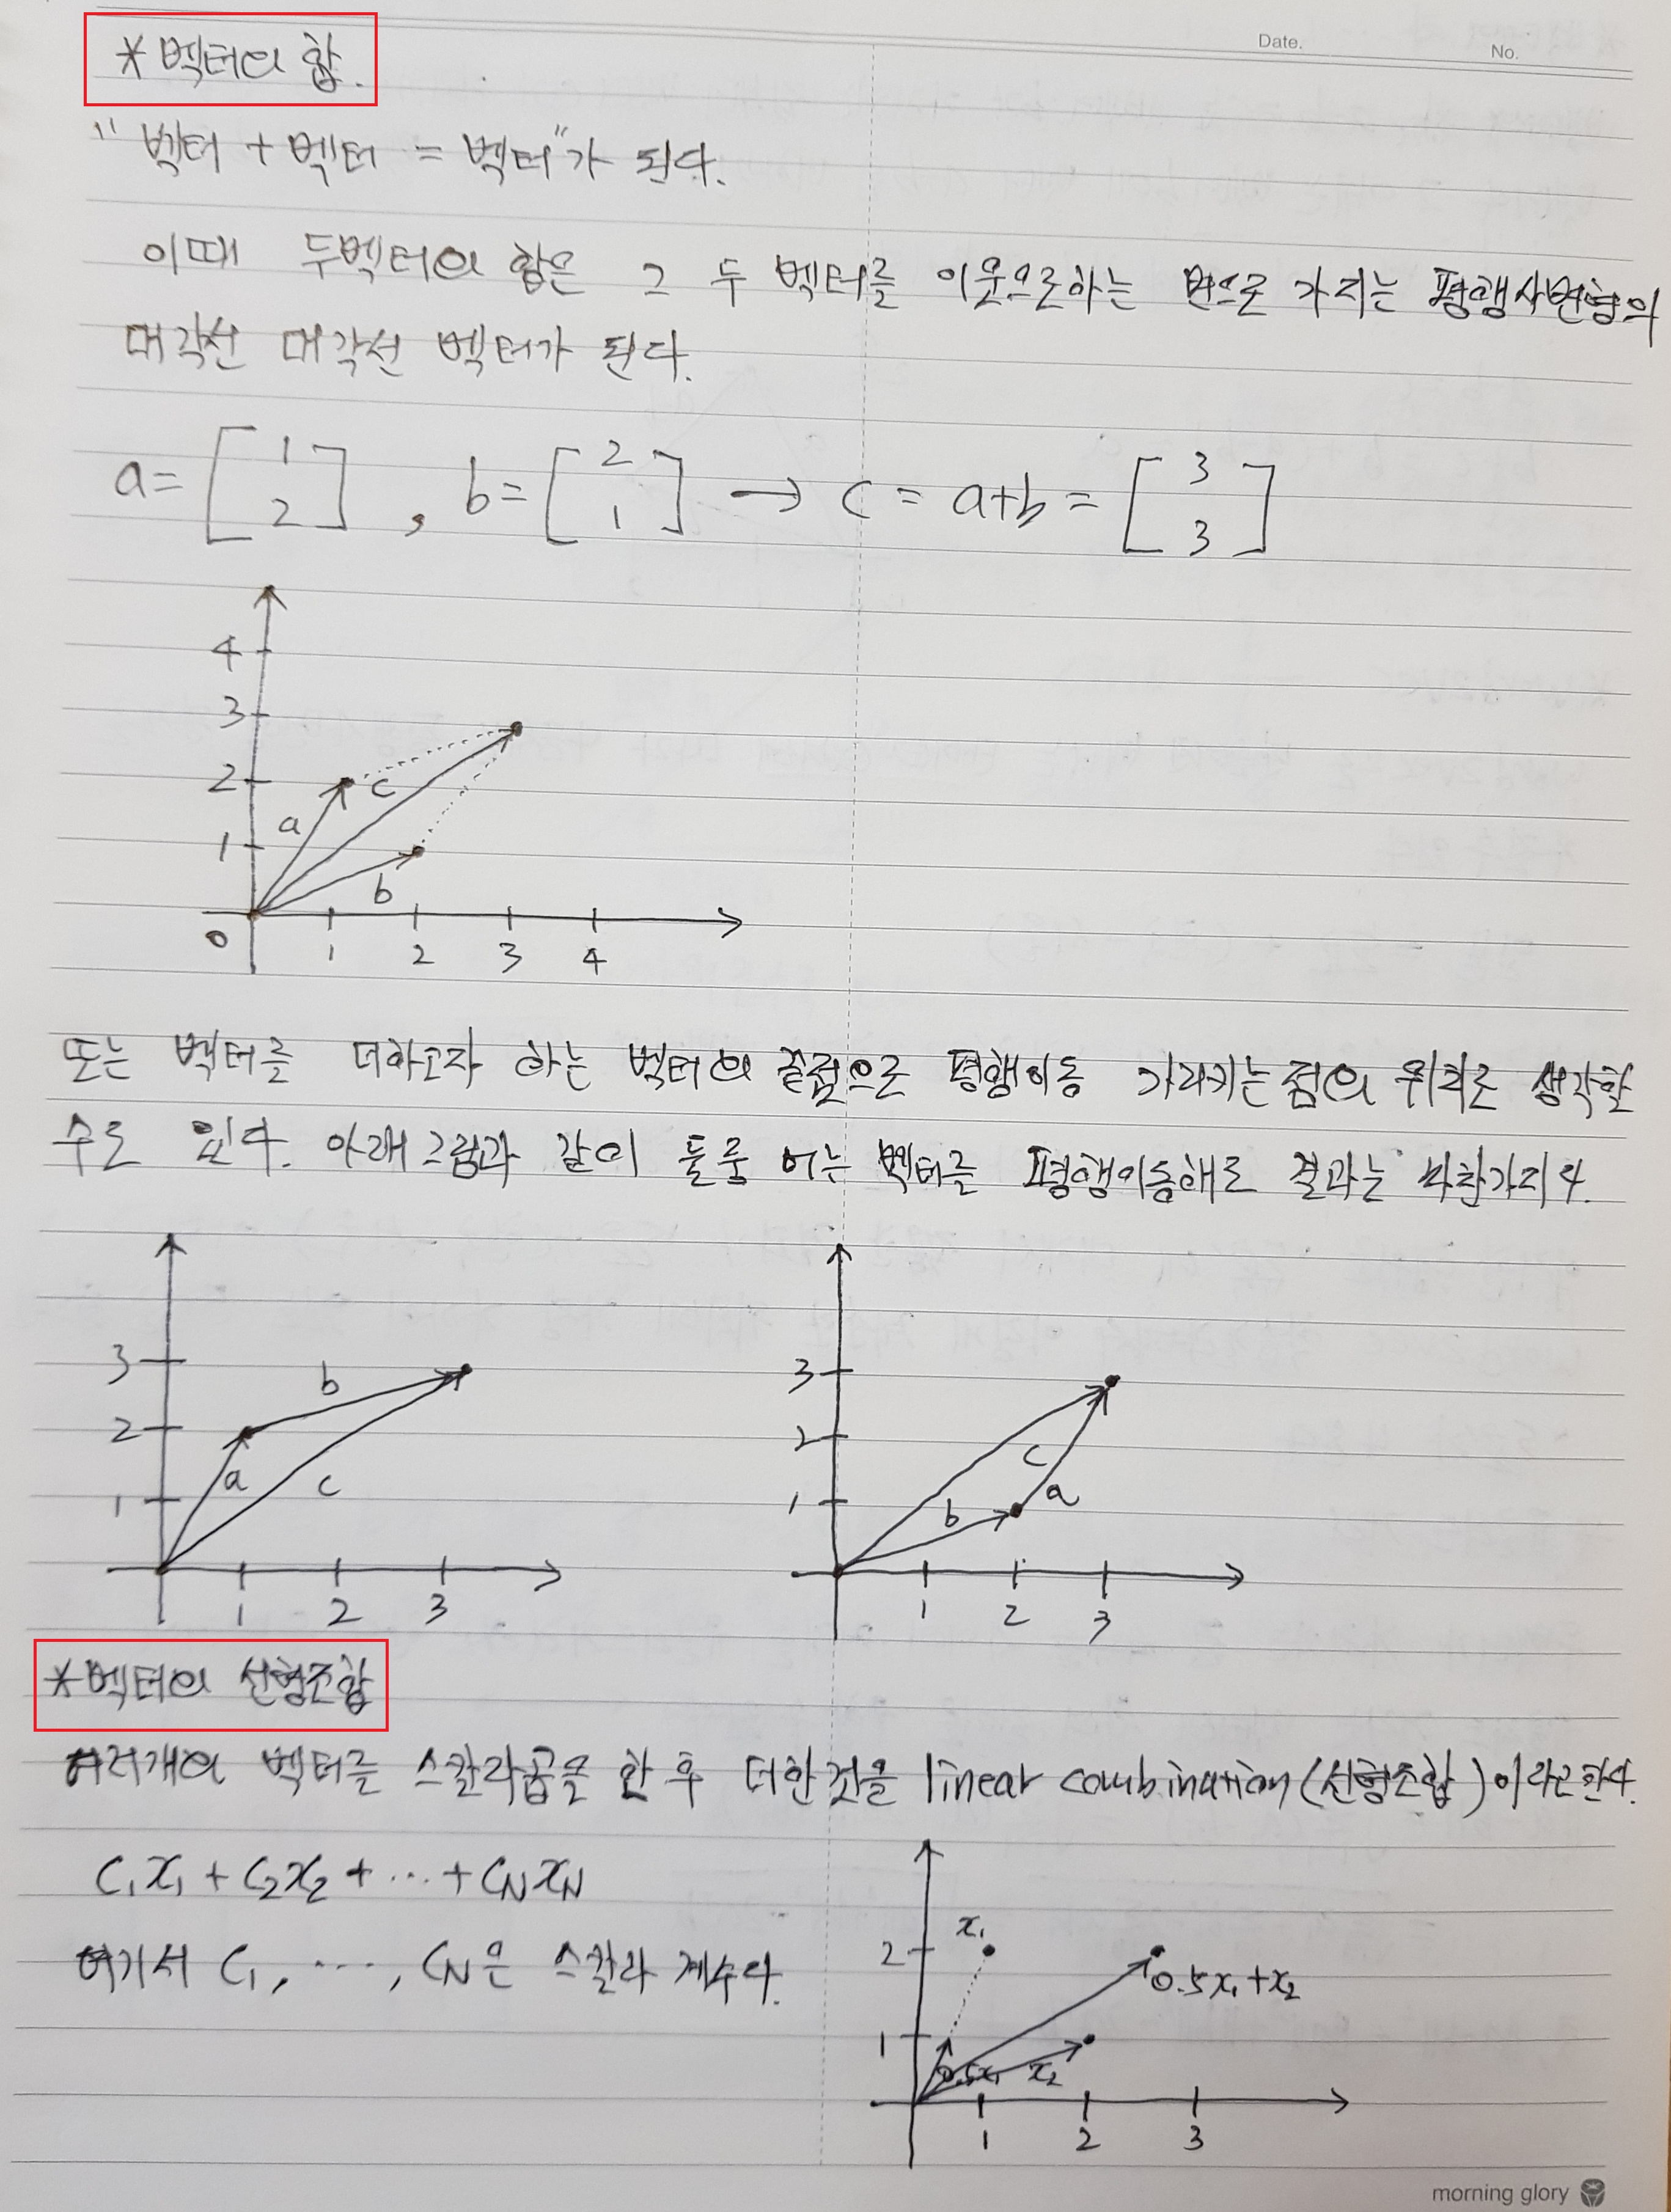 Date.
No.
* 벡터의 합.
"벡터 + 벡터 = 벡터"가 된다.
이때 두벡터의 합은 그 두 벡터를 이웃으로하는 변으로 가지는 평행사변형의
대각선 대각선 벡터가 된다.
a = [1 2], b = [2 1] → c = a+b = [3 3]
4
3
2 c
a
1
b
0 1 2 3 4
또는 벡터를 더하고자 하는 벡터의 끝점으로 평행이동 가리키는 점의 위치로 생각할
수도 있다. 아래그림과 같이 둘중 어느 벡터를 평행이동해도 결과는 마찬가지다.
3 b
2
a c
1
1 2 3
3
2 c
1 b a
1 2 3
* 벡터의 선형조합
여러개의 벡터를 스칼라곱을 한 후 더한것을 linear combination (선형조합)이라고한다.
C₁x₁ + C₂x₂ + ... + C_N x_N
여기서 C₁, ..., C_N은 스칼라 계수다.
x₁
2
0.5x₁+x₂
1
0.5x₁ x₂
1 2 3
morning glory